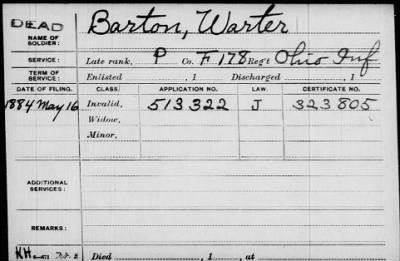 DEAD Barton, Warter
NAME OF SOLDIER:
SERVICE: Late rank, P Co. F 178 Reg't Ohio Inf
TERM OF SERVICE: Enlisted , 1 Discharged , 1
DATE OF FILING. CLASS. APPLICATION NO. LAW. CERTIFICATE NO.
1884 May 16 Invalid, 513322 J 323805
Widow,
Minor,
ADDITIONAL SERVICES:
REMARKS:
KH Died , 1 , at